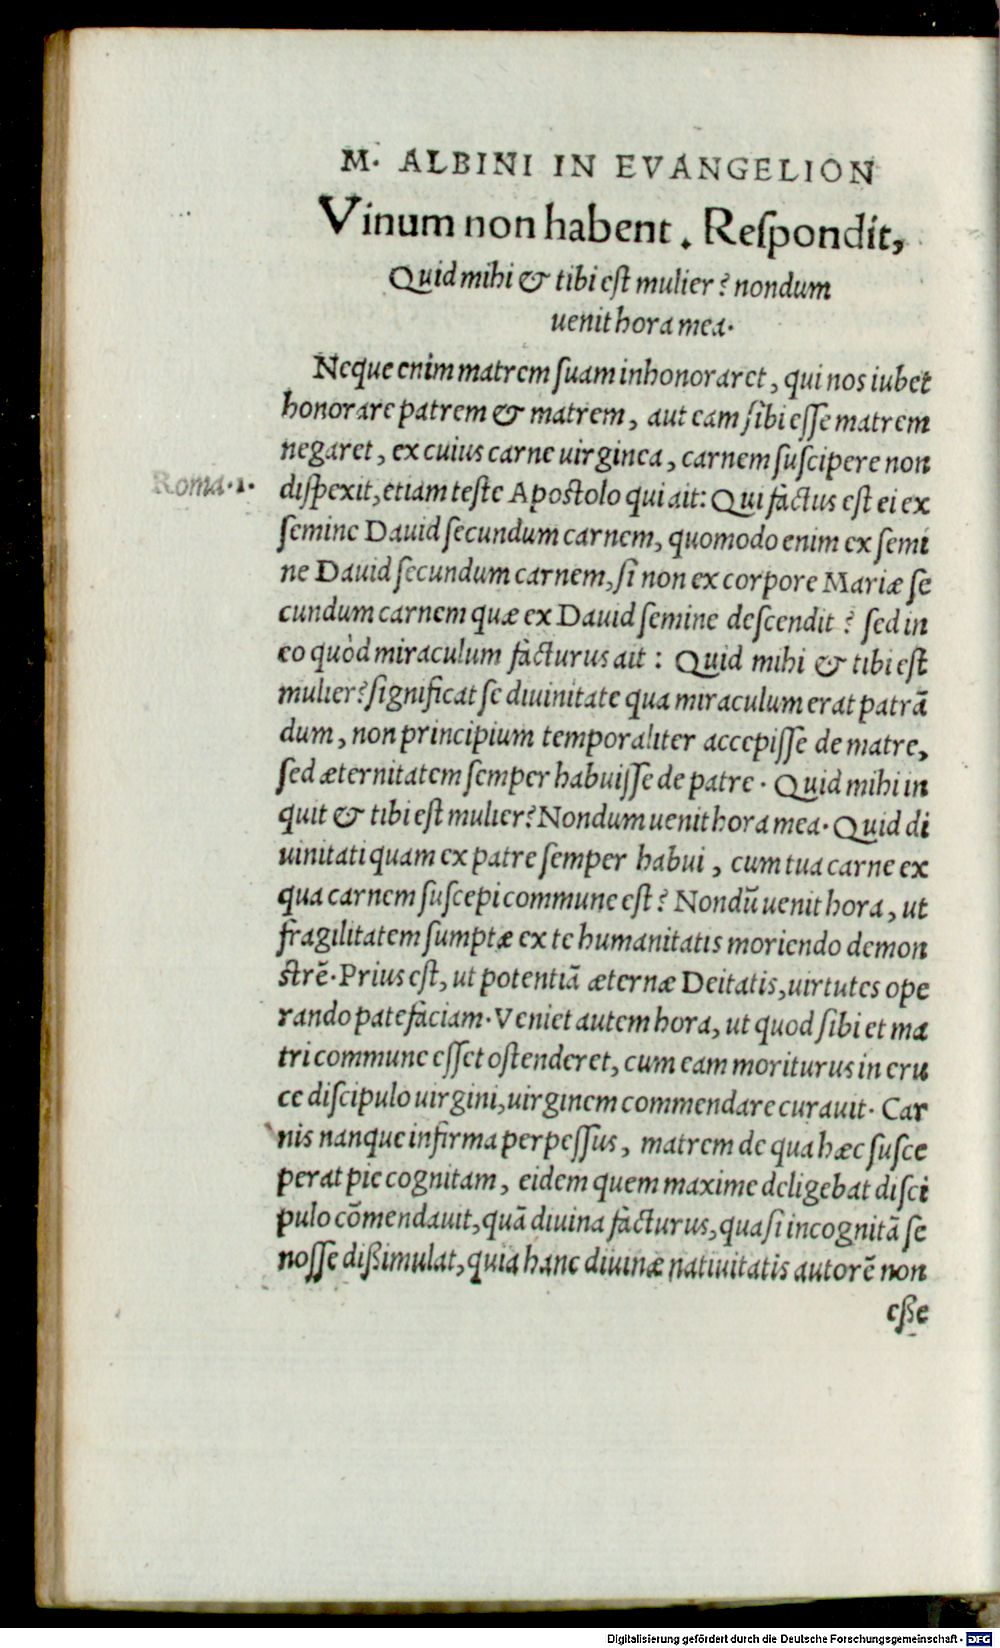 M. ALBINI IN EVANGELION
Vinum non habent. Reſpondit,
Quid mihi & tibi eſt mulier? nondum
uenit hora mea.
Neque enim matrem ſuam inhonoraret, qui nos iubet
honorare patrem & matrem, aut eam ſibi eſſe matrem
negaret, ex cuius carne uirginea, carnem ſuſcipere non
Roma.1.
diſpexit, etiam teſte Apoſtolo qui ait: Qui factus eſt ei ex
ſemine Dauid ſecundum carnem, quomodo enim ex ſemi
ne Dauid ſecundum carnem, ſi non ex corpore Mariæ ſe
cundum carnem quæ ex Dauid ſemine deſcendit? ſed in
eo quòd miraculum facturus ait: Quid mihi & tibi eſt
mulier? ſignificat ſe diuinitate qua miraculum erat patrā
dum, non principium temporaliter accepiſſe de matre,
ſed æternitatem ſemper habuiſſe de patre. Quid mihi in
quit & tibi eſt mulier? Nondum uenit hora mea. Quid di
uinitati quam ex patre ſemper habui, cum tua carne ex
qua carnem ſuſcepi commune eſt? Nondū uenit hora, ut
fragilitatem ſumptæ ex te humanitatis moriendo demon
ſtrē. Prius eſt, ut potentiā æternæ Deitatis, uirtutes ope
rando patefaciam. Veniet autem hora, ut quod ſibi et ma
tri commune eſſet oſtenderet, cum eam moriturus in cru
ce diſcipulo uirgini, uirginem commendare curauit. Car
nis nanque infirma perpeſſus, matrem de qua hæc ſuſce
perat pie cognitam, eidem quem maxime deligebat diſci
pulo cōmendauit, quā diuina facturus, quaſi incognitā ſe
noſſe dißimulat, quia hanc diuinæ natiuitatis autorē non
eße
Digitalisierung gefördert durch die Deutsche Forschungsgemeinschaft - DFG